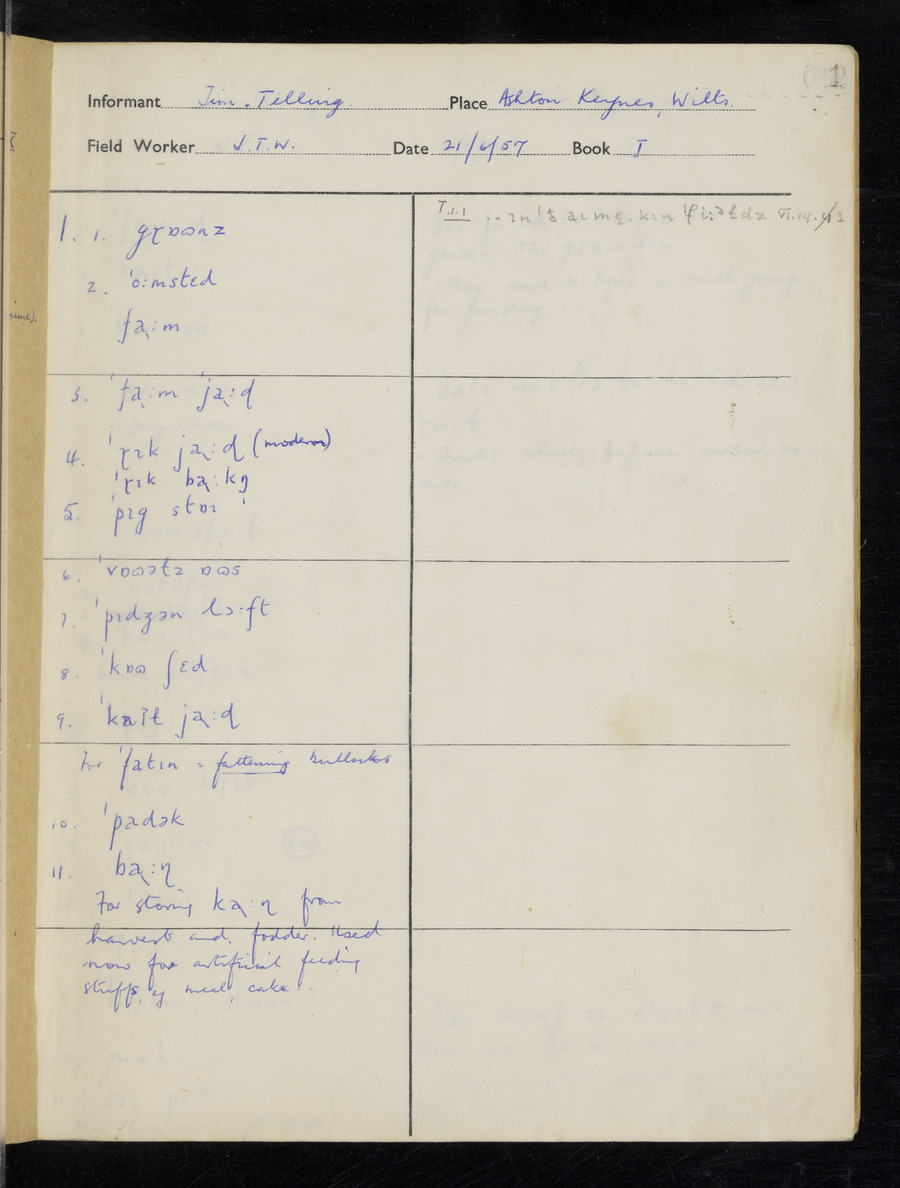 1
Informant Jim. Telling. Place Ashton Keynes, Wilts.
Field Worker J.T.W. Date 21/6/57 Book I
1. 1. gɽɒʊnz
2. ˈo:mstɛd
fa˞:m
3. ˈfa˞:m ˈja˞:ɖ
4. ˈɽɪk ja˞:ɖ (modern)
ˈɽɪk ba˞:kŋ
5. ˈpɪg stɒɪ
6. ˈvɒʊəɫz ɒʊs
7. ˈpɪdʒən lɔ:ft
8. ˈkɒʊ ʃɛd
9. ˈkaʔɫ ja˞:ɖ
For ˈfatɪn = fattening bullocks
10. ˈpadək
11. ba˞:ɳ
For storing ka˞:ɳ from
harvest and fodder. Used
now for artificial feeding
stuffs, eg meal, cake.
T.1.1